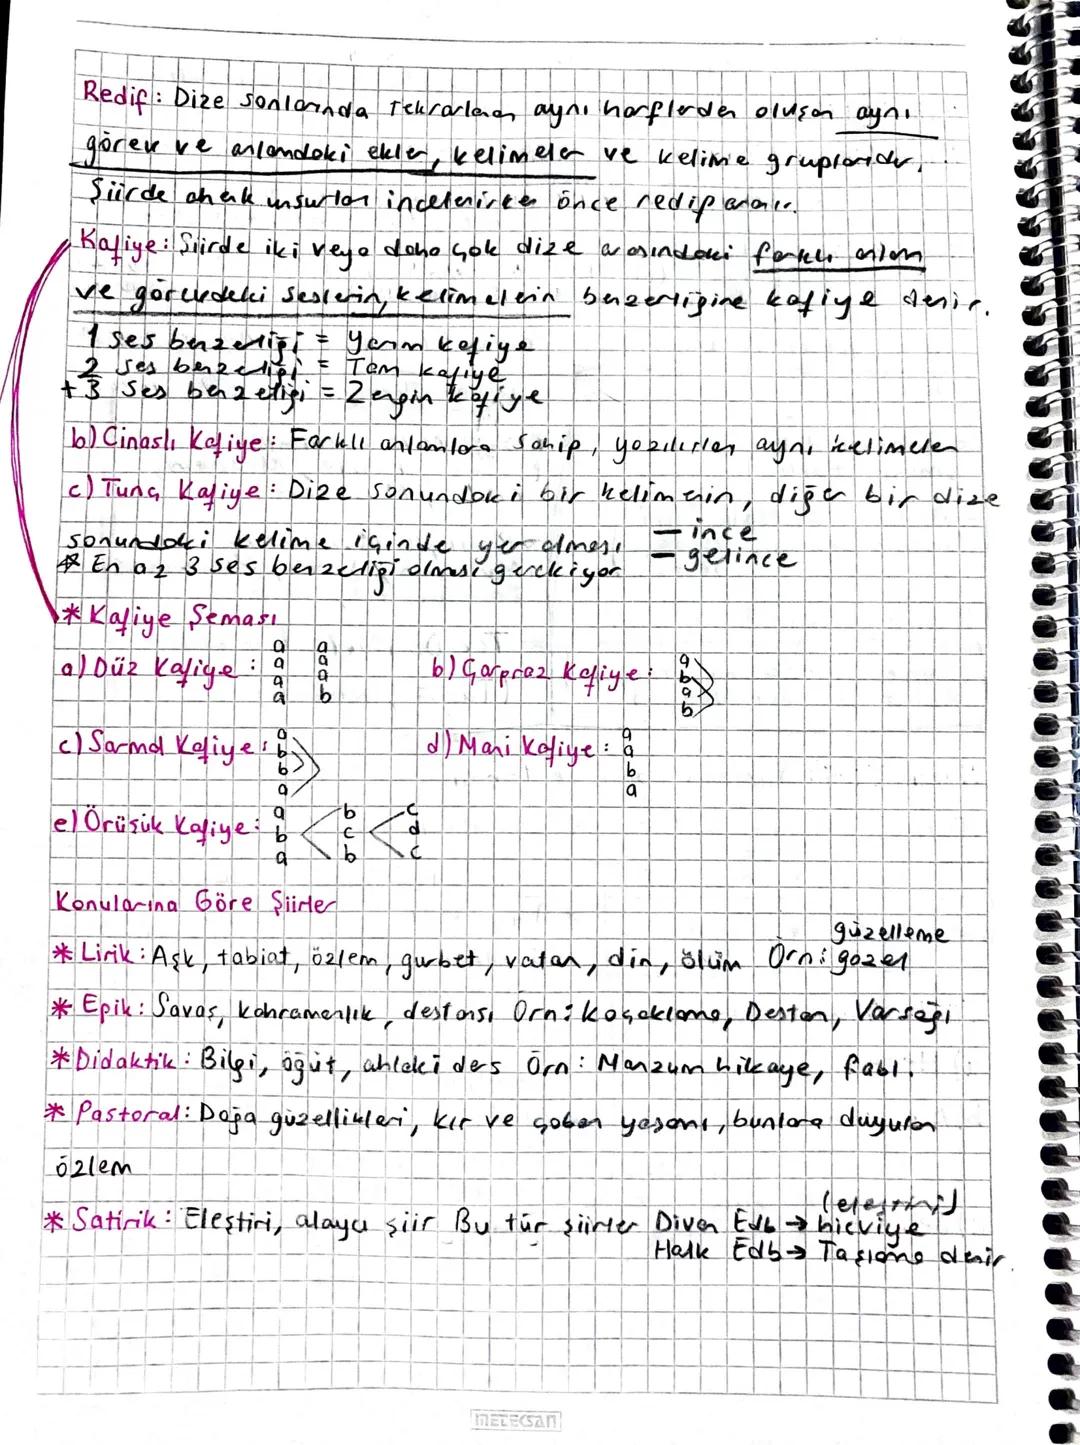 Redif: Dize sonlarında tekrarlanan aynı harflerden oluşan aynı
görev ve anlamdaki ekler, kelimeler ve kelime gruplarıdır.
Şiirde ahenk unsurları incelenirken önce redif aranır.
Kafiye: Şiirde iki veya daha çok dize arasındaki farklı anlam
ve görevdeki seslerin, kelimelerin benzerliğine kafiye denir.
1 ses benzerliği = Yarım kafiye
2 ses benzerliği = Tam kafiye
+3 ses benzerliği = Zengin kafiye
b) Cinaslı Kafiye: Farklı anlamlara sahip, yazılışları aynı kelimeler
c) Tunç Kafiye: Dize sonundaki bir kelimenin, diğer bir dize
sonundaki kelime içinde yer alması — ince
* En az 3 ses benzerliği olması gerekiyor — gelince
* Kafiye Şeması
a) Düz Kafiye: a a a a a a a b b) Çarpraz Kafiye: a b a b
c) Sarmal Kafiye: a b b a d) Mani Kafiye: a a b a
e) Örüşük Kafiye: a b a b c b c d c
Konularına Göre Şiirler
güzelleme
* Lirik: Aşk, tabiat, özlem, gurbet, vatan, din, ölüm Örn: gazel
* Epik: Savaş, kahramanlık, destansı Örn: koçaklama, Destan, Varsağı
* Didaktik: Bilgi, öğüt, ahlaki ders Örn: Manzum hikaye, fabl.
* Pastoral: Doğa güzellikleri, kır ve çoban yaşamı, bunlara duyulan
özlem
(eleştiri)
* Satirik: Eleştiri, alaycı şiir Bu tür şiirler Divan Edb → hicviye
Halk Edb → Taşlama denir.
METEKSAN